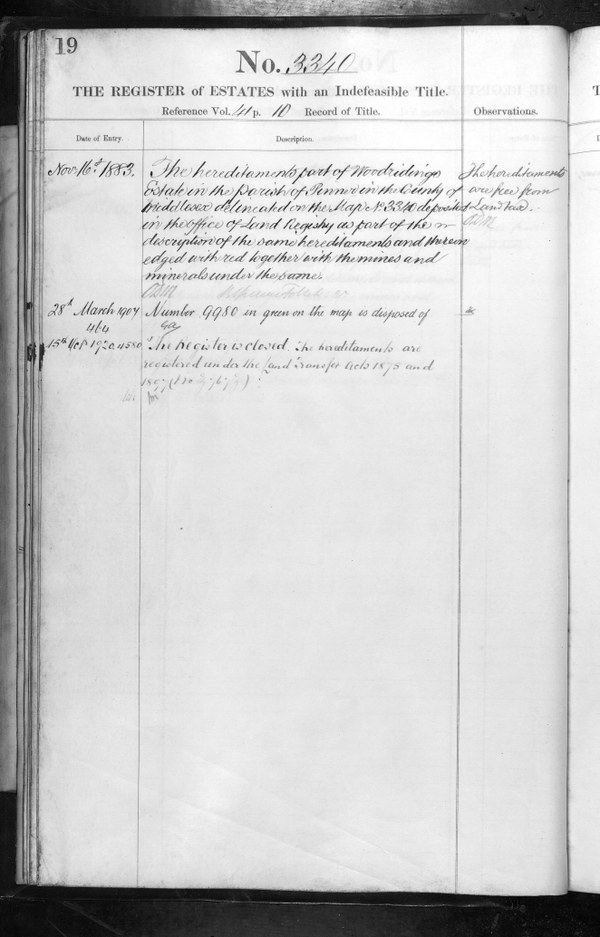 19
No. 3340
THE REGISTER of ESTATES with an Indefeasible Title.
Reference Vol. 41 p. 10 Record of Title.
Observations.
Date of Entry.
Description.
Nov 16th 1883.
The hereditaments part of Woodridings
Estate in the Parish of Pinner in the County of
Middlesex delineated on the Map No 3340 deposited
in the office of Land Registry as part of the
description of the same hereditaments and thereon
edged with red together with the mines and
minerals under the same.
The hereditaments
are free from
Land tax.
28th March 1907
464
Number 9980 in green on the map is disposed of
15th Oct 1920 4580
The Register is closed. The hereditaments are
registered under the Land Transfer Acts 1875 and
1897